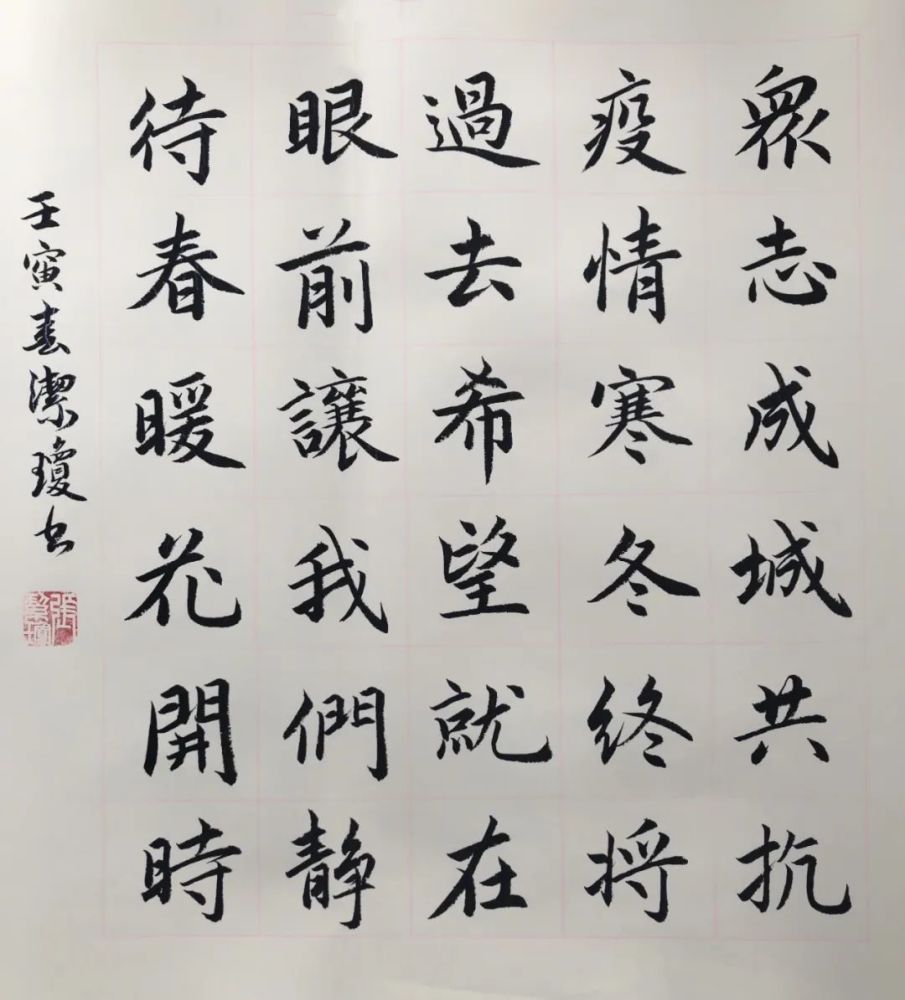 眾志成城共抗
疫情寒冬終將
過去希望就在
眼前讓我們靜
待春暖花開時
壬寅春潔瓊书